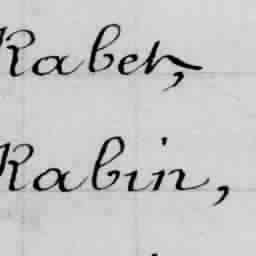 Raber,
Rabin,